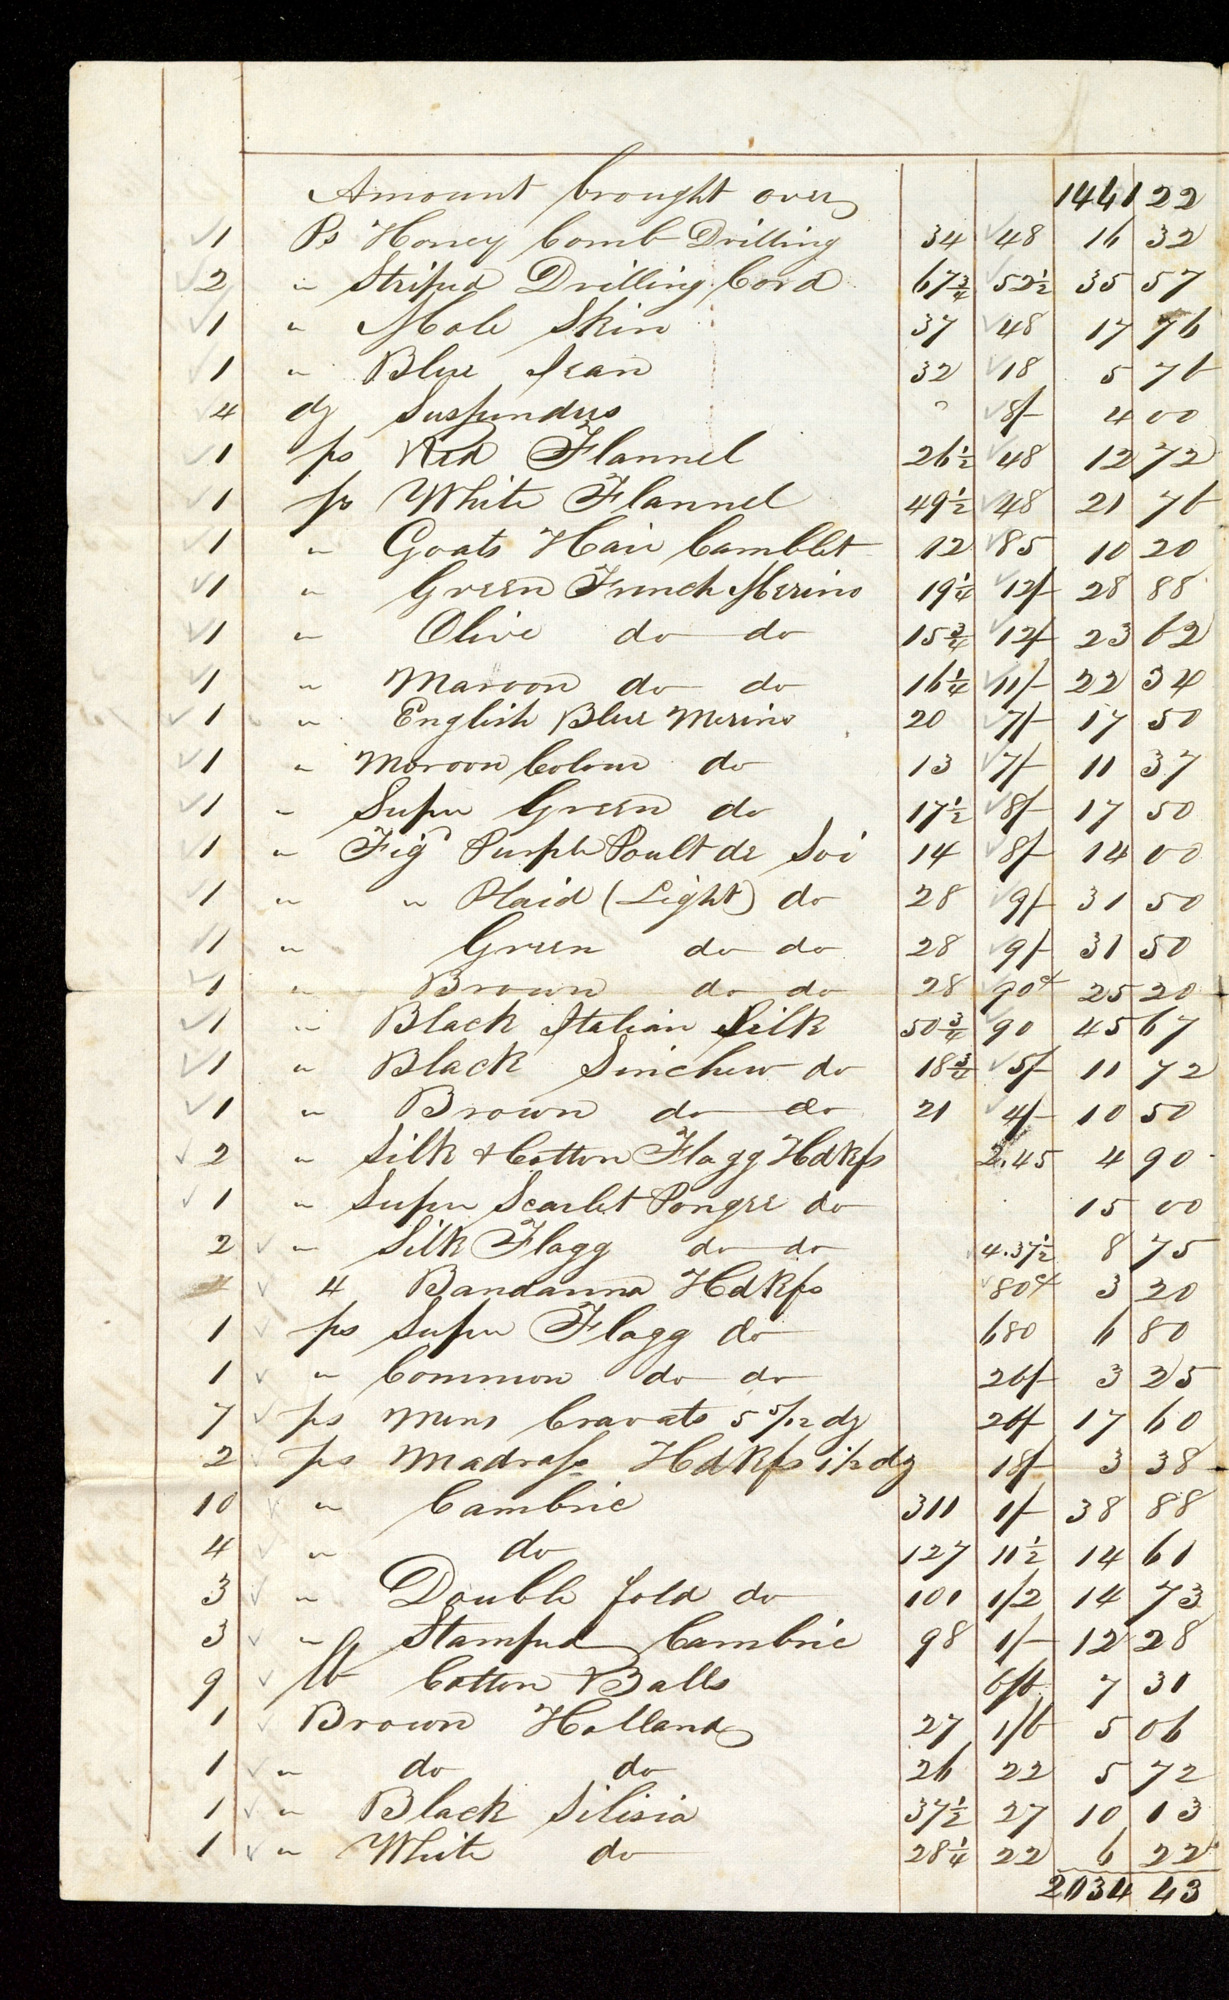 Amount brought over 1441 22
1 Ps Honey Comb Drilling 34 48 16 32
2 " Striped Drilling Cord 67 3/4 52 1/2 35 57
1 " Mole Skin 37 48 17 76
1 " Blue Jean 32 18 5 76
4 dz Suspenders 8/- 4 00
1 ps Red Flannel 26 1/2 48 12 72
1 ps White Flannel 49 1/2 48 21 76
1 " Goats Hair Camblet 12 85 10 20
1 " Green French Merino 19 1/4 12/- 28 88
1 " Olive do do 15 3/4 12/- 23 62
1 " Maroon do do 16 1/4 11/- 22 34
1 " English Blue Merino 20 7/- 17 50
1 " Moroon Colour do 13 7/- 11 37
1 " Super Green do 17 1/2 8/- 17 50
1 " Figd Purple Poult de Soi 14 8/- 14 00
1 " " Plaid (Light) do 28 9/- 31 50
1 " Green do do 28 9/- 31 50
1 " Brown do do 28 90c 25 20
1 " Black Italian Silk 50 3/4 90 45 67
1 " Black Sinchew do 18 3/4 5/- 11 72
1 " Brown do do 21 4/- 10 50
2 " Silk & Cotton Flagg Hdkfs 2.45 4 90
1 " Super Scarlet Pongee do 15 00
2 " Silk Flagg do do 4.37 1/2 8 75
4 Bandanna Hdkfs 80c 3 20
1 ps Super Flagg do 680 6 80
1 " Common do do 26/- 3 25
7 ps Mens Cravats 5 5/12 dz 26/- 17 60
2 ps Madrass Hdkfs 1 1/2 dz 18/- 3 38
10 " Cambric 311 1/- 38 88
4 " do 127 11 1/2 14 61
3 " Double fold do 101 1/2 14 73
3 " Stamped Cambric 98 1/- 12 28
9 lb Cotton Balls 6/6 7 31
1 Brown Holland 27 1/6 5 06
1 " do do 26 22 5 72
1 " Black Silisia 37 1/2 27 10 13
1 " White do 28 1/4 22 6 22
2034 43